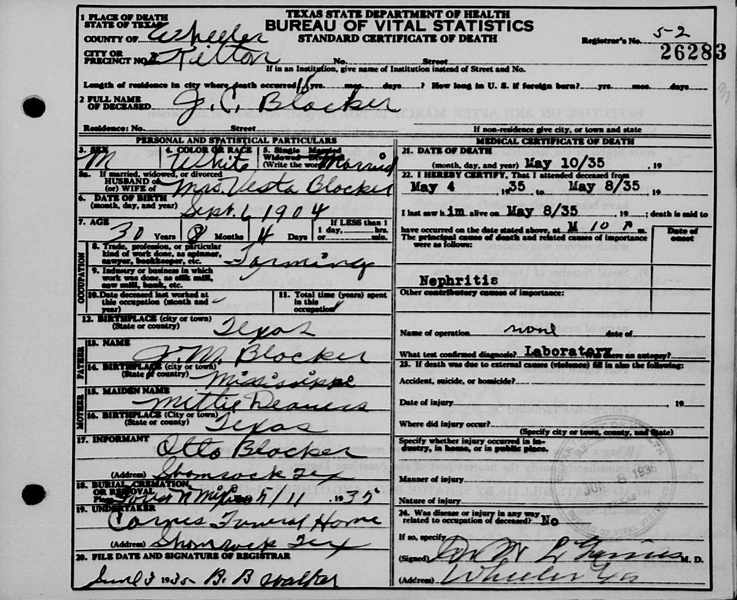 TEXAS STATE DEPARTMENT OF HEALTH
BUREAU OF VITAL STATISTICS
STANDARD CERTIFICATE OF DEATH
1 PLACE OF DEATH
STATE OF TEXAS
COUNTY OF Wheeler
CITY OR
PRECINCT NO.
Street
Registrar's No. 5-2
26283
If in an Institution, give name of Institution instead of Street and No.
Length of residence in city where death occurred yrs. mos. days. How long in U. S. if foreign born? yrs. mos. days
2 FULL NAME
OF DECEASED J. C. Blocker
Residence: No. Street
If non-residence give city, or town and state
PERSONAL AND STATISTICAL PARTICULARS
3. SEX
M
4. COLOR OR RACE
White
5. Single Married
Widowed Divorced
(Write the word) Married
5a. If married, widowed, or divorced
HUSBAND of
(or) WIFE of Mrs. Vesta Blocker
6. DATE OF BIRTH
(month, day, and year) Sept. 6 1904
7. AGE
30 Years 8 Months 4 Days
If LESS than 1
1 day, hrs.
or min.
OCCUPATION
8. Trade, profession, or particular
kind of work done, as spinner,
sawyer, bookkeeper, etc. Farming
9. Industry or business in which
work was done, as silk mill,
saw mill, bank, etc.
10. Date deceased last worked at
this occupation (month and
year)
11. Total time (years) spent
in this
occupation
12. BIRTHPLACE (city or town)
(State or country) Texas
FATHER
13. NAME J. M. Blocker
14. BIRTHPLACE (city or town)
(State or country) Mississippi
MOTHER
15. MAIDEN NAME Mittie
16. BIRTHPLACE (City or town)
(State or country) Texas
17. INFORMANT Otto Blocker
(Address) Shamrock Tex
18. BURIAL, CREMATION,
OR REMOVAL
Place 5/11 1935
19. UNDERTAKER Funeral Home
(Address) Shamrock Tex
20. FILE DATE AND SIGNATURE OF REGISTRAR
June 3 1935 B. B. Walker
MEDICAL CERTIFICATE OF DEATH
21. DATE OF DEATH
(month, day, and year) May 10/35 , 19
22. I HEREBY CERTIFY, That I attended deceased from
May 4 35 to May 8/35
I last saw h im alive on May 8/35 , 19 ; death is said to
have occurred on the date stated above, at 10 P m.
The principal cause of death and related causes of importance
were as follows:
Date of
onset
Nephritis
Other contributory causes of importance:
Name of operation none date of
What test confirmed diagnosis? Laboratory Was there an autopsy?
23. If death was due to external causes (violence) fill in also the following:
Accident, suicide, or homicide?
Date of injury 19
Where did injury occur?
(Specify city or town, county, and State)
Specify whether injury occurred in in-
dustry, in home, or in public place.
Manner of injury
Nature of injury
24. Was disease or injury in any way
related to occupation of deceased? No
If so, specify
(Signed) M. D.
(Address) Wheeler